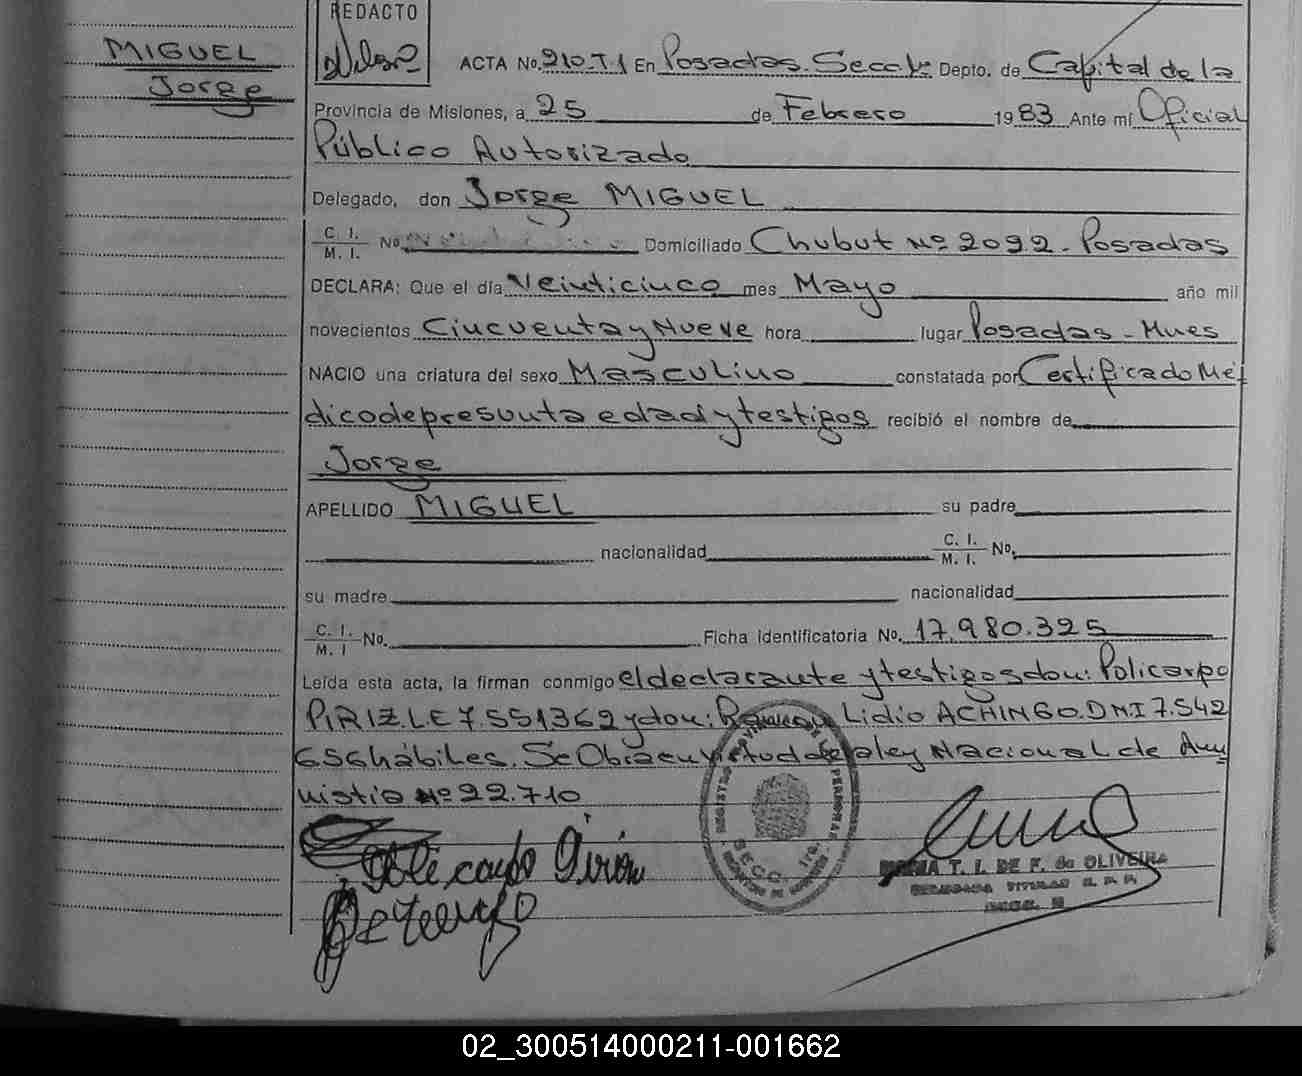 MIGUEL
Jorge
REDACTO
ACTA No. 210.T.1 En Posadas. Secc 1ª Depto. de Capital de la
Provincia de Misiones, a 25 de Febrero 1983 Ante mí Oficial
Público Autorizado
Delegado, don Jorge MIGUEL
C. I.
M. I. No. Domiciliado Chubut Nº 2092. Posadas
DECLARA: Que el día Veinticinco mes Mayo año mil
novecientos Cincuenta y Nueve hora lugar Posadas - Mnes
NACIO una criatura del sexo Masculino constatada por Certificado Mé-
dico de presunta edad y testigos recibió el nombre de
Jorge
APELLIDO MIGUEL su padre
nacionalidad C. I.
M. I. No.
su madre nacionalidad
C. I.
M. I No. Ficha identificatoria No. 17.980.325
Leída esta acta, la firman conmigo el declarante y testigos don: Policarpo
PIRIZ. L E 7.551362 y don: Ramon Lidio ACHINGO. D N I 7.542
656 hábiles. Se Obra en virtud de la ley Nacional de Am-
nistia Nº 22.710
Policarpo Piris
T. I. DE F. de OLIVEIRA
DELEGADA TITULAR R. P. P.
SECC. 1ra.
02_300514000211-001662